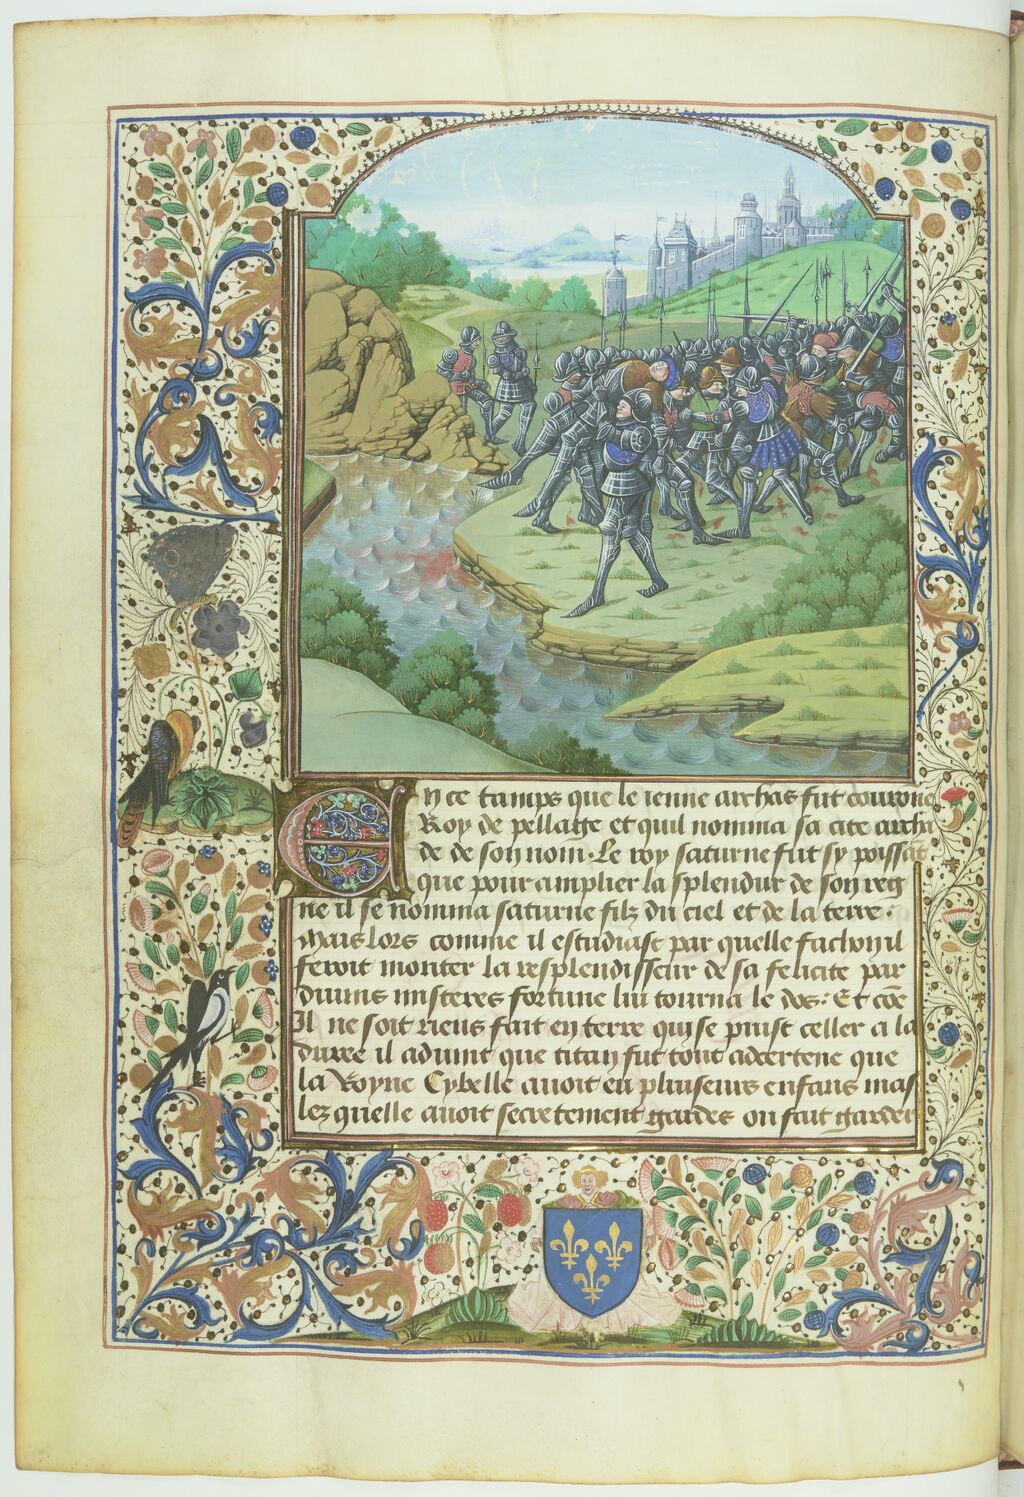 En ce tamps que le ienne archas fut courone
Roy de pellage et quil nomma sa cite archa
de de son nom. Le roy saturne fut sy poissāt
que pour amplier la splendur de son reg
ne il se nomma saturne filz du ciel et de la terre.
Mais lors comme il estudiast par quelle fachon il
feroit monter la resplendisseur de sa felicite par
diuins misteres fortune lui tourna le dos: Et cōe
Il ne soit riens fait en terre qui se puist celler a la
duree il aduint que titan fut tout acertene que
la Royne Cybelle auoit eu pluiseurs enfans mas
lez quelle auoit secretement gardes ou fait garder